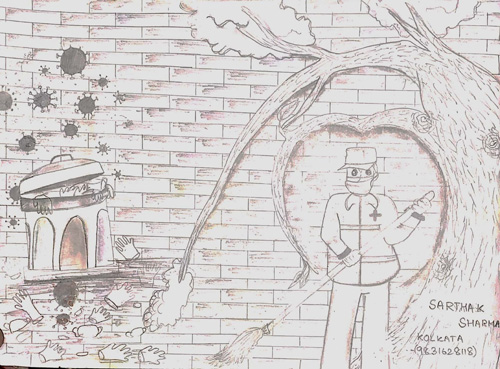 SARTHAK
SHARMA
KOLKATA
(9831628118)